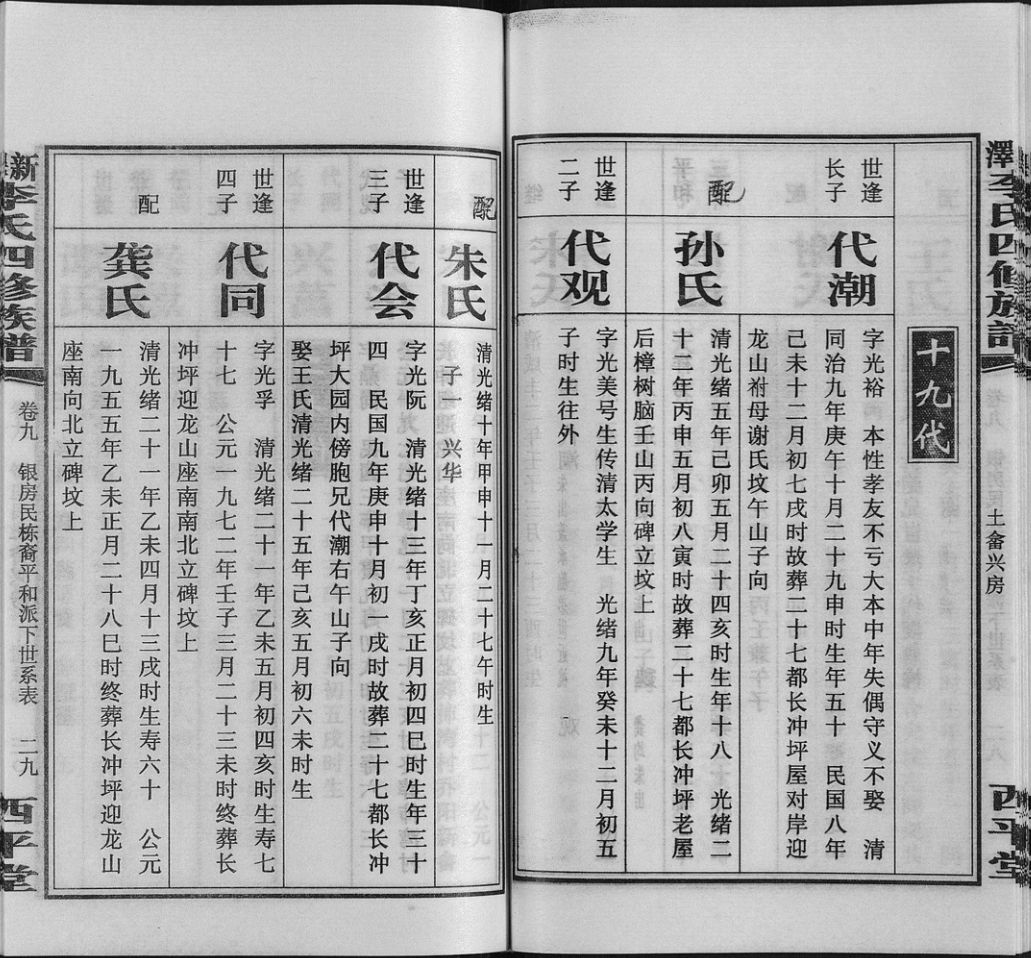 澤李氏四修族譜
土畲兴房
西平堂
十九代
世逢
长子
代潮
字光裕 本性孝友不亏大本中年失偶守义不娶 清
同治九年庚午十月二十九申时生年五十 民国八年
己未十二月初七戌时故葬二十七都长冲坪屋对岸迎
龙山祔母谢氏坟午山子向
配
孙氏
清光绪五年己卯五月二十四亥时生年十八 光绪二
十二年丙申五月初八寅时故葬二十七都长冲坪老屋
后樟树脑壬山丙向碑立坟上
世逢
二子
代观
字光美号生传清太学生 光绪九年癸未十二月初五
子时生往外
配
朱氏
清光绪十年甲申十一月二十七午时生
子一 兴华
世逢
三子
代会
字光阮 清光绪十三年丁亥正月初四巳时生年三十
四 民国九年庚申十月初一戌时故葬二十七都长冲
坪大园内傍胞兄代潮右午山子向
娶王氏清光绪二十五年己亥五月初六未时生
世逢
四子
代同
字光孚 清光绪二十一年乙未五月初四亥时生寿七
十七 公元一九七二年壬子三月二十三未时终葬长
冲坪迎龙山座南南北立碑坟上
配
龚氏
清光绪二十一年乙未四月十三戌时生寿六十 公元
一九五五年乙未正月二十八巳时终葬长冲坪迎龙山
座南向北立碑坟上
新
李氏四修族譜
卷九 银房民栋裔平和派下世系表 二九
西平堂